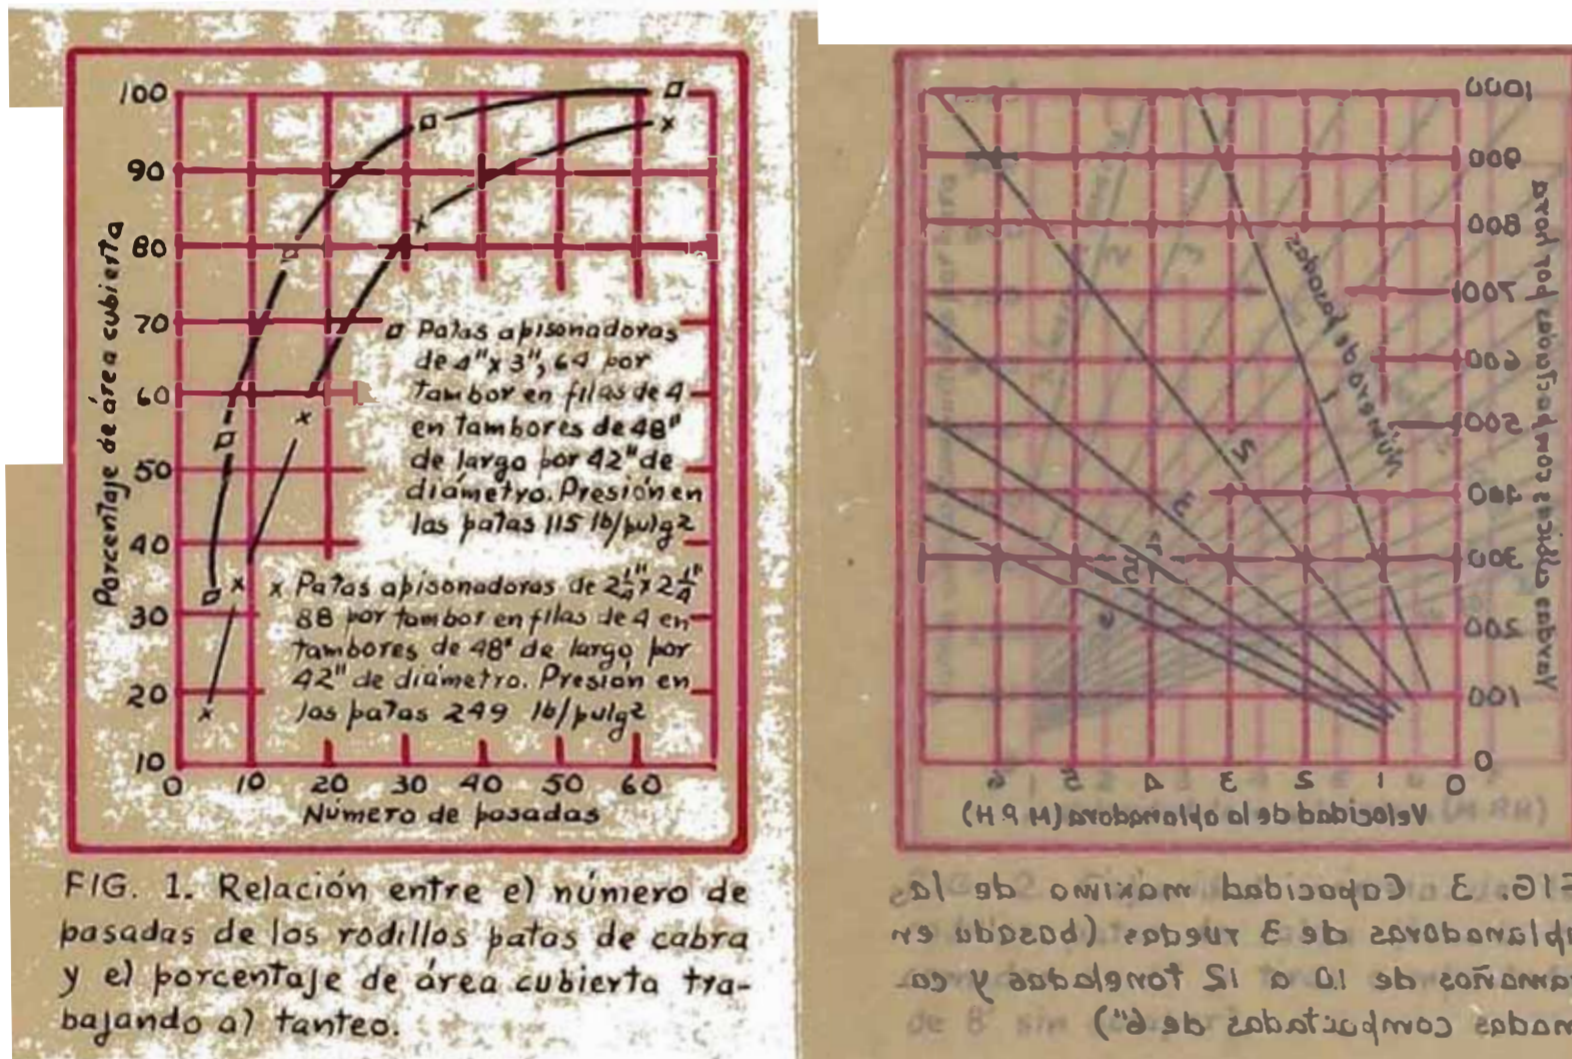 100
90
80
70
60
50
40
30
20
10
Porcentaje de área cubierta
□ Patas apisonadoras
de 4"x3", 64 por
tambor en filas de 4
en tambores de 48"
de largo por 42" de
diámetro. Presión en
las patas 115 lb/pulg2
x Patas apisonadoras de 2¼"x2¼"
88 por tambor en filas de 4 en
tambores de 48" de largo por
42" de diámetro. Presión en
las patas 249 lb/pulg2
0 10 20 30 40 50 60
Número de pasadas
FIG. 1. Relación entre el número de
pasadas de los rodillos patas de cabra
y el porcentaje de área cubierta tra-
bajando al tanteo.
1000
900
800
700
600
500
400
300
200
100
0
Yardas cúbicas compactadas por hora
Número de pasadas
1
2
3
4
5
6
0 1 2 3 4 5 6
Velocidad de la aplanadora (M P H)
FIG. 3 Capacidad maximo de las
aplanadoras de 3 ruedas (basada en
tamaños de 10 a 12 toneladas y ca-
madas compactadas de 6")